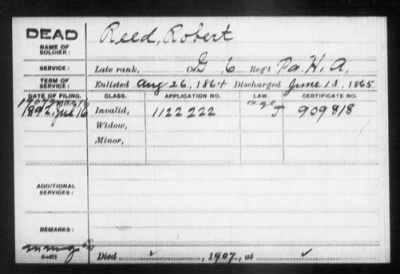 DEAD
NAME OF SOLDIER:
Reed, Robert
SERVICE:
Late rank, Co. G, 6 Reg't Pa. H. A.
TERM OF SERVICE:
Enlisted Aug 26, 1864 Discharged June 13, 1865
DATE OF FILING. CLASS. APPLICATION NO. LAW. CERTIFICATE NO.
1892, July 16 Invalid, 1122222 age J 909818
Widow,
Minor,
ADDITIONAL SERVICES:
REMARKS:
Died , 1907, at